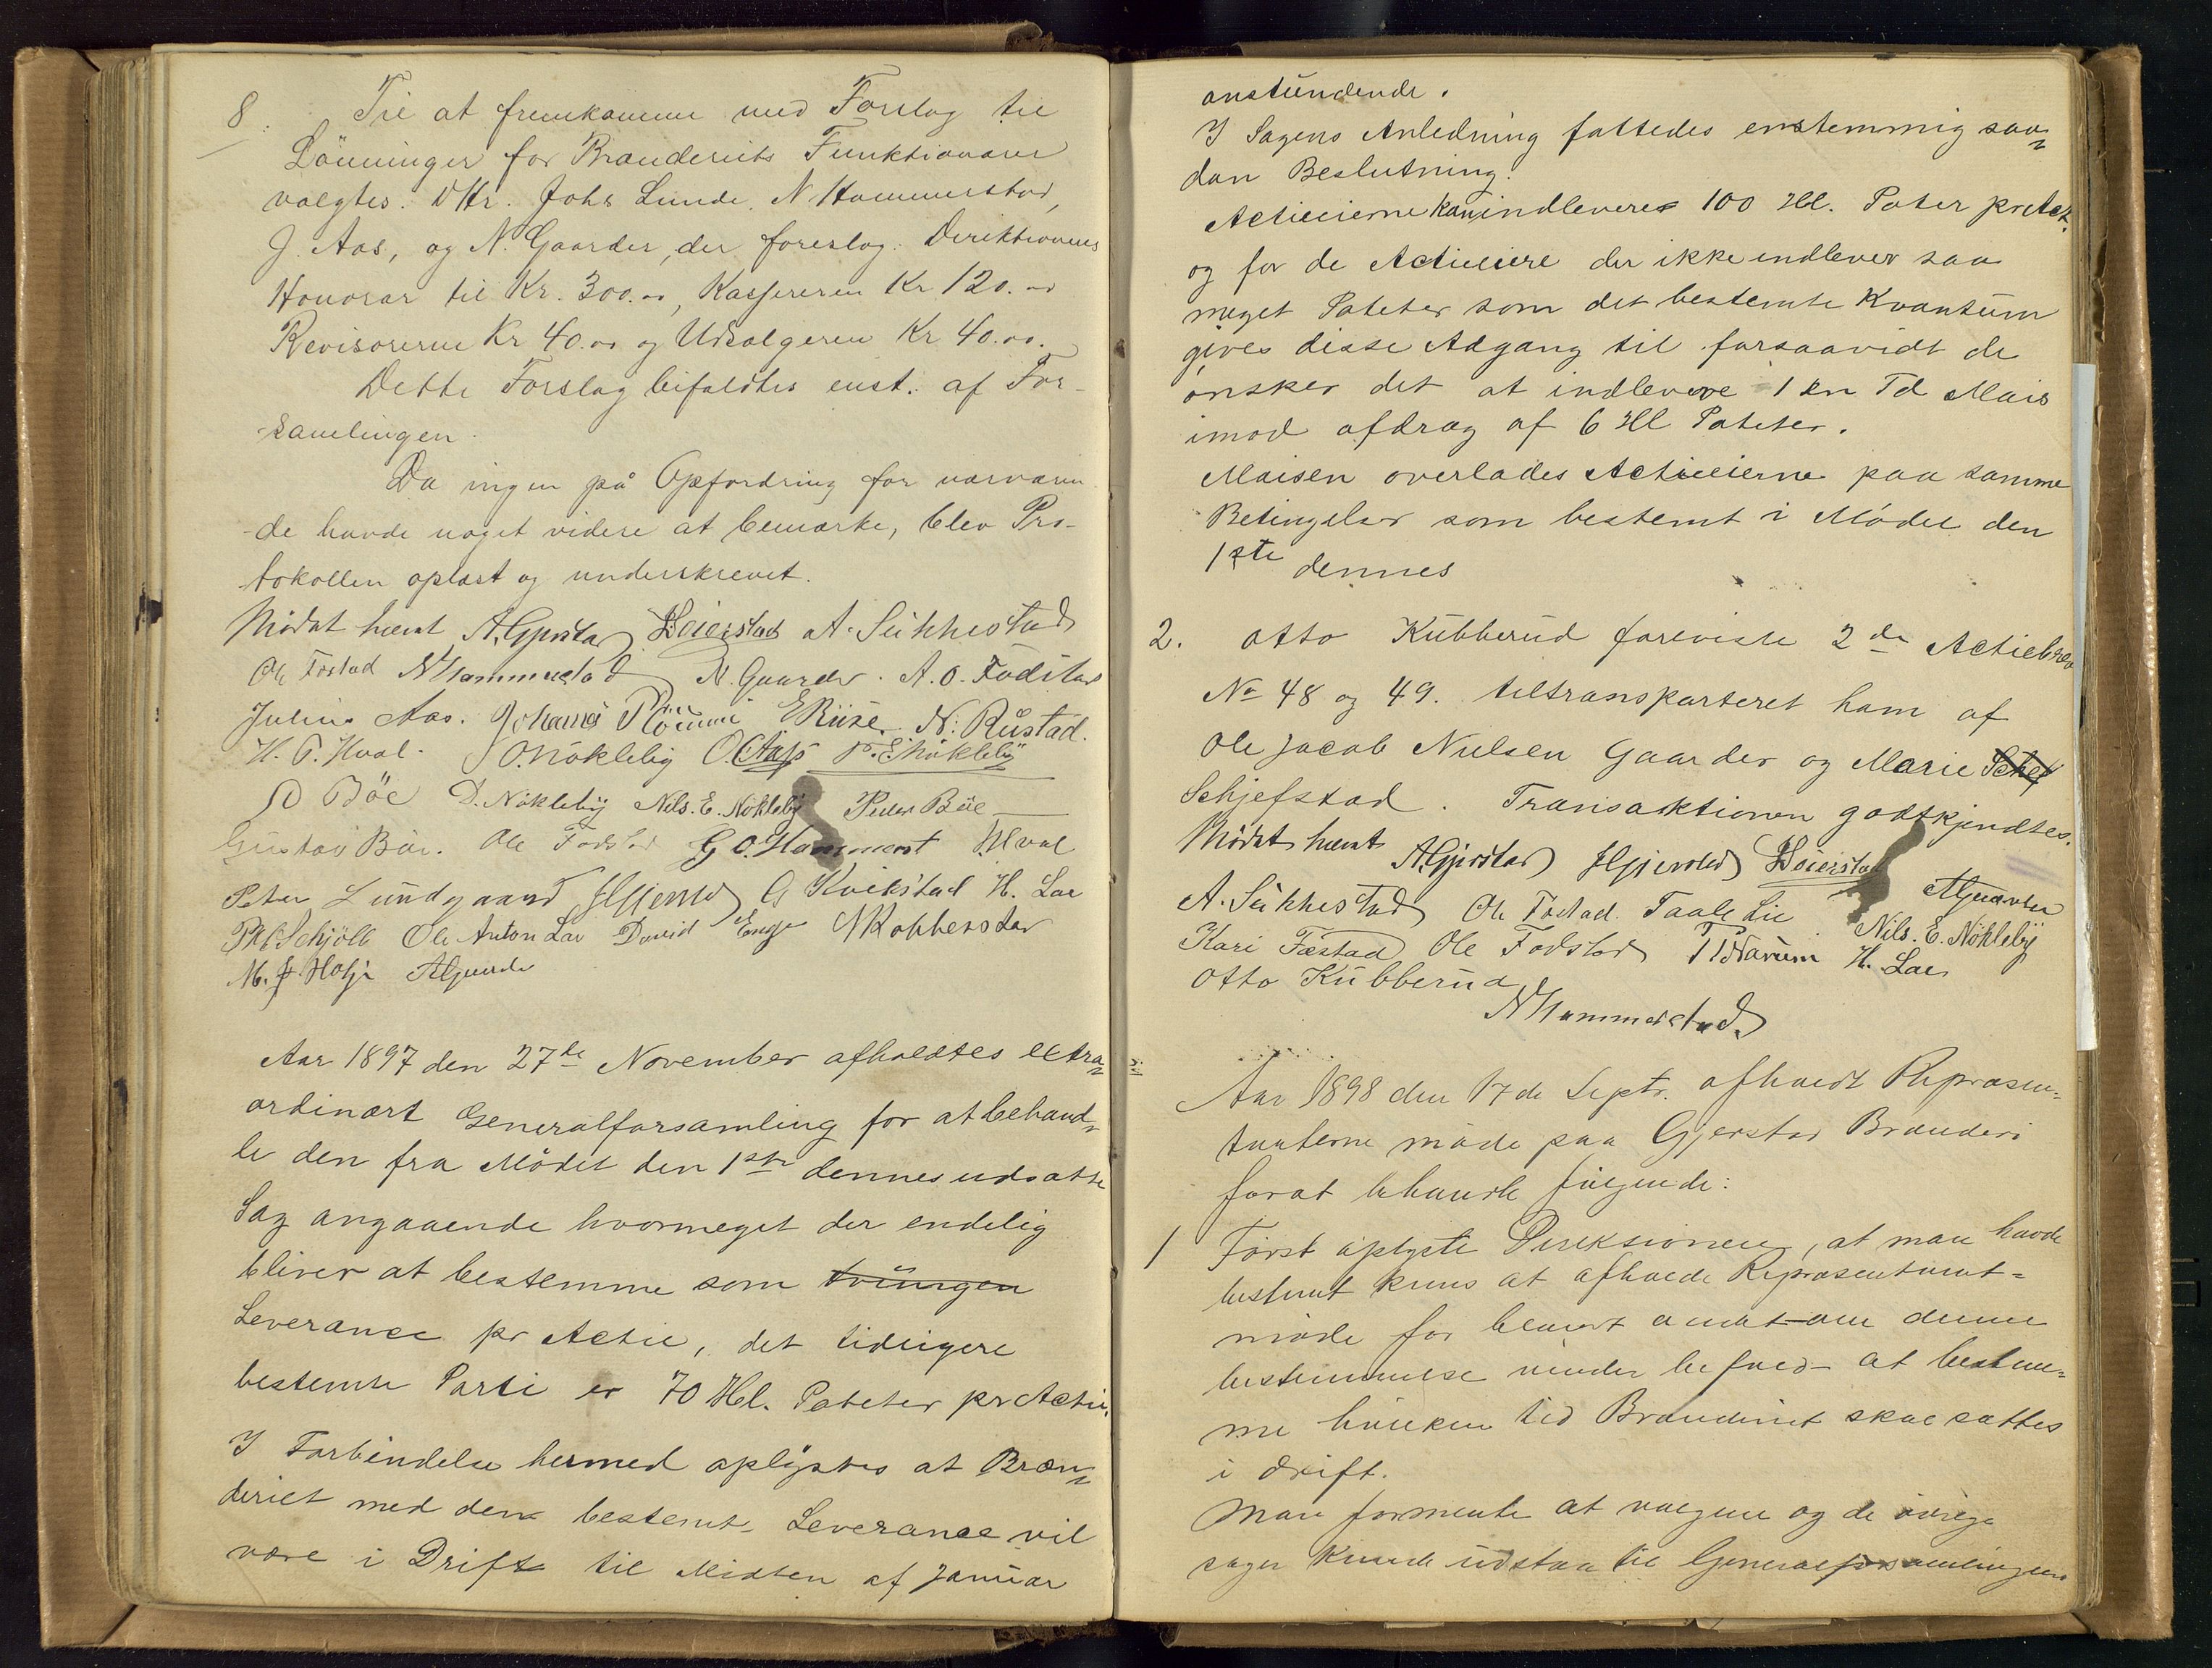 8. Til at fremkomme med Forslag til
Lönninger for Brænderiets Funktionærer
valgtes. DHr. Johs Lunde, N Hammerstad,
J. Aas, og N. Gaarder, der foreslog: Direktionens
Honorar til Kr. 300.00, Kassereren Kr 120.00
Revisorerne Kr 40.00 og Udsælgeren Kr 40.00.
Dette Forslag bifaldtes enst. af For-
samlingen.
Da ingen på Opfordring for nærværen
-de havde noget videre at bemærke, blev Pro-
tokollen oplæst og underskrevet.
Mödet hævet A. Gjerstad Heierstad A. Sukkestad
Ole Fostad N Hammerstad N. Gaarder. A. O. Fodstad
Julius Aas. Johannes E Riise. N. Rustad.
H. P. Hval. O. Nökleby O. Aass P. E. Nökleby
Böe D. Nökleby Nils. E. Nökleby Peder Böe
Gustav Böe. Ole Fodstad G. O. Hammerst Hval
Peter Lundgaard G Kvikstad H. Lae
Schjöll Ole Anton Lae David Enge N Kobberstad
M. Holje
Aar 1897 den 27de November afholdtes extra-
ordinært Generalforsamling for at behand-
le den fra Mödet den 1ste dennes udsatte
Sag angaaende hvormeget der endelig
bliver at bestemme som tvungen
Leverance pr Actie, det tidligere
bestemte Parti er 70 Hl. Poteter pr Actie.
I Forbindelse hermed oplystes at Bræn-
deriet med den bestemte Leverance vil
være i Drift til Midten af Januar
anstundende.
I Sagens Anledning fattedes enstemmig saa-
dan Beslutning.
Actieeierne kan indlevere 100 Hl. Poter pr Act.
og for de Actieeiere der ikke indlever saa
meget Poteter som det bestemte Kvantum
gives disse Adgang til forsaavidt de
önsker det at indlevere 1 en Td Mais
imod afdrag af 6 Hl Poteter.
Maisen overlades Actieeierne paa samme
Betingelser som bestemt i Mödet den
1ste dennes
2. Otto Kubberud foreviste 2de Actiebrev
No 48 og 49. tiltransporteret ham af
Ole Jacob Nielsen Gaarder og Marie Schef
Schjefstad. Transaktionen godtkjendtes.
Mödet hævet A. Gjerstad H Gjerstad Heierstad
A. Sukkestad Ole Fostad. Taale Lie
Kari Fæstad Ole Fodstad Nils. E. Nökleby
Otto Kubberud H. Lae
N Hammerstad
Aar 1898 den 17de Septr. afholdt Repræsen-
tanterne möde paa Gjerstad Brænderi
forat behandle fölgende:
1 Först oplyste Direksionen, at man havde
bestemt kuns at afholde Repræsentant-
möde for denne
bestemmelse at bestem-
me hvilken tid Brænderiet skal sættes
i drift.
Man formente at valgene og de övrige
sager kunde udstaa til Generalforsamlingen